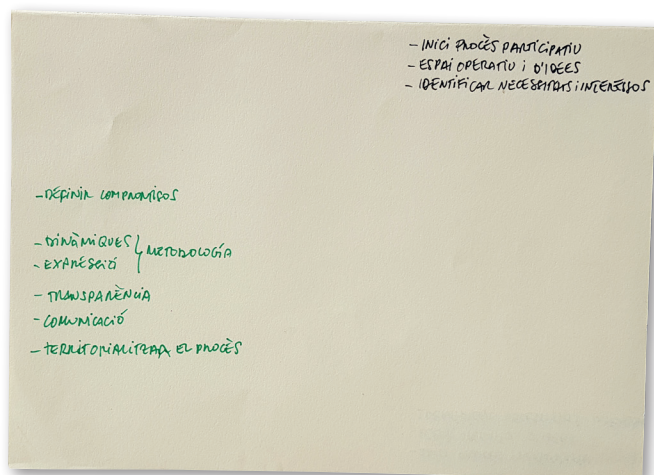 - INICI PROCÈS PARTICIPATIU
- ESPAI OPERATIU i D'IDEES
- IDENTIFICAR NECESSITATS i INTERESSOS
- DEFINIR COMPROMISOS
- DINÀMIQUES
- EXPRESSIÓ
} METODOLOGÍA
- TRANSPARÈNCIA
- COMUNICACIÓ
- TERRITORIALITZAR EL PROCÈS